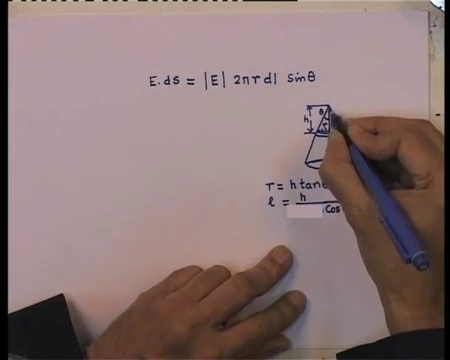 E.ds = |E| 2πr dl sinθ
h θ r
r = h tan
l = h
cos